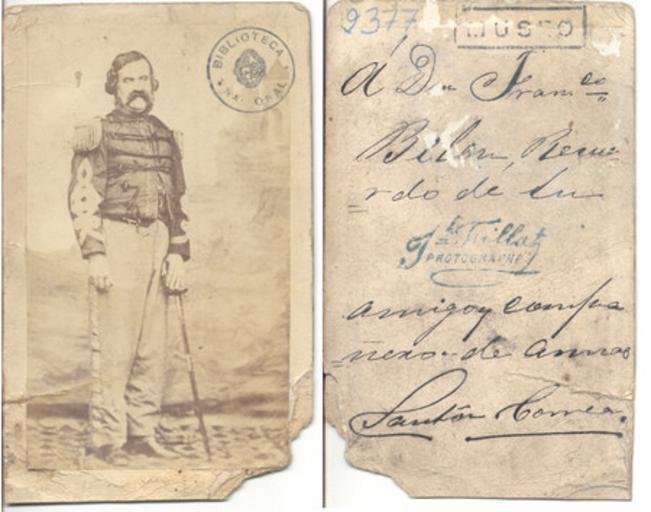 BIBLIOTECA
NACIONAL
9377
MUSEO
A Dn Franco
Bilan, Recue
rdo de Su
Jh Fillat
PHOTOGRAPHE
amigo y compa
ñero de armas
Santôn Correa.